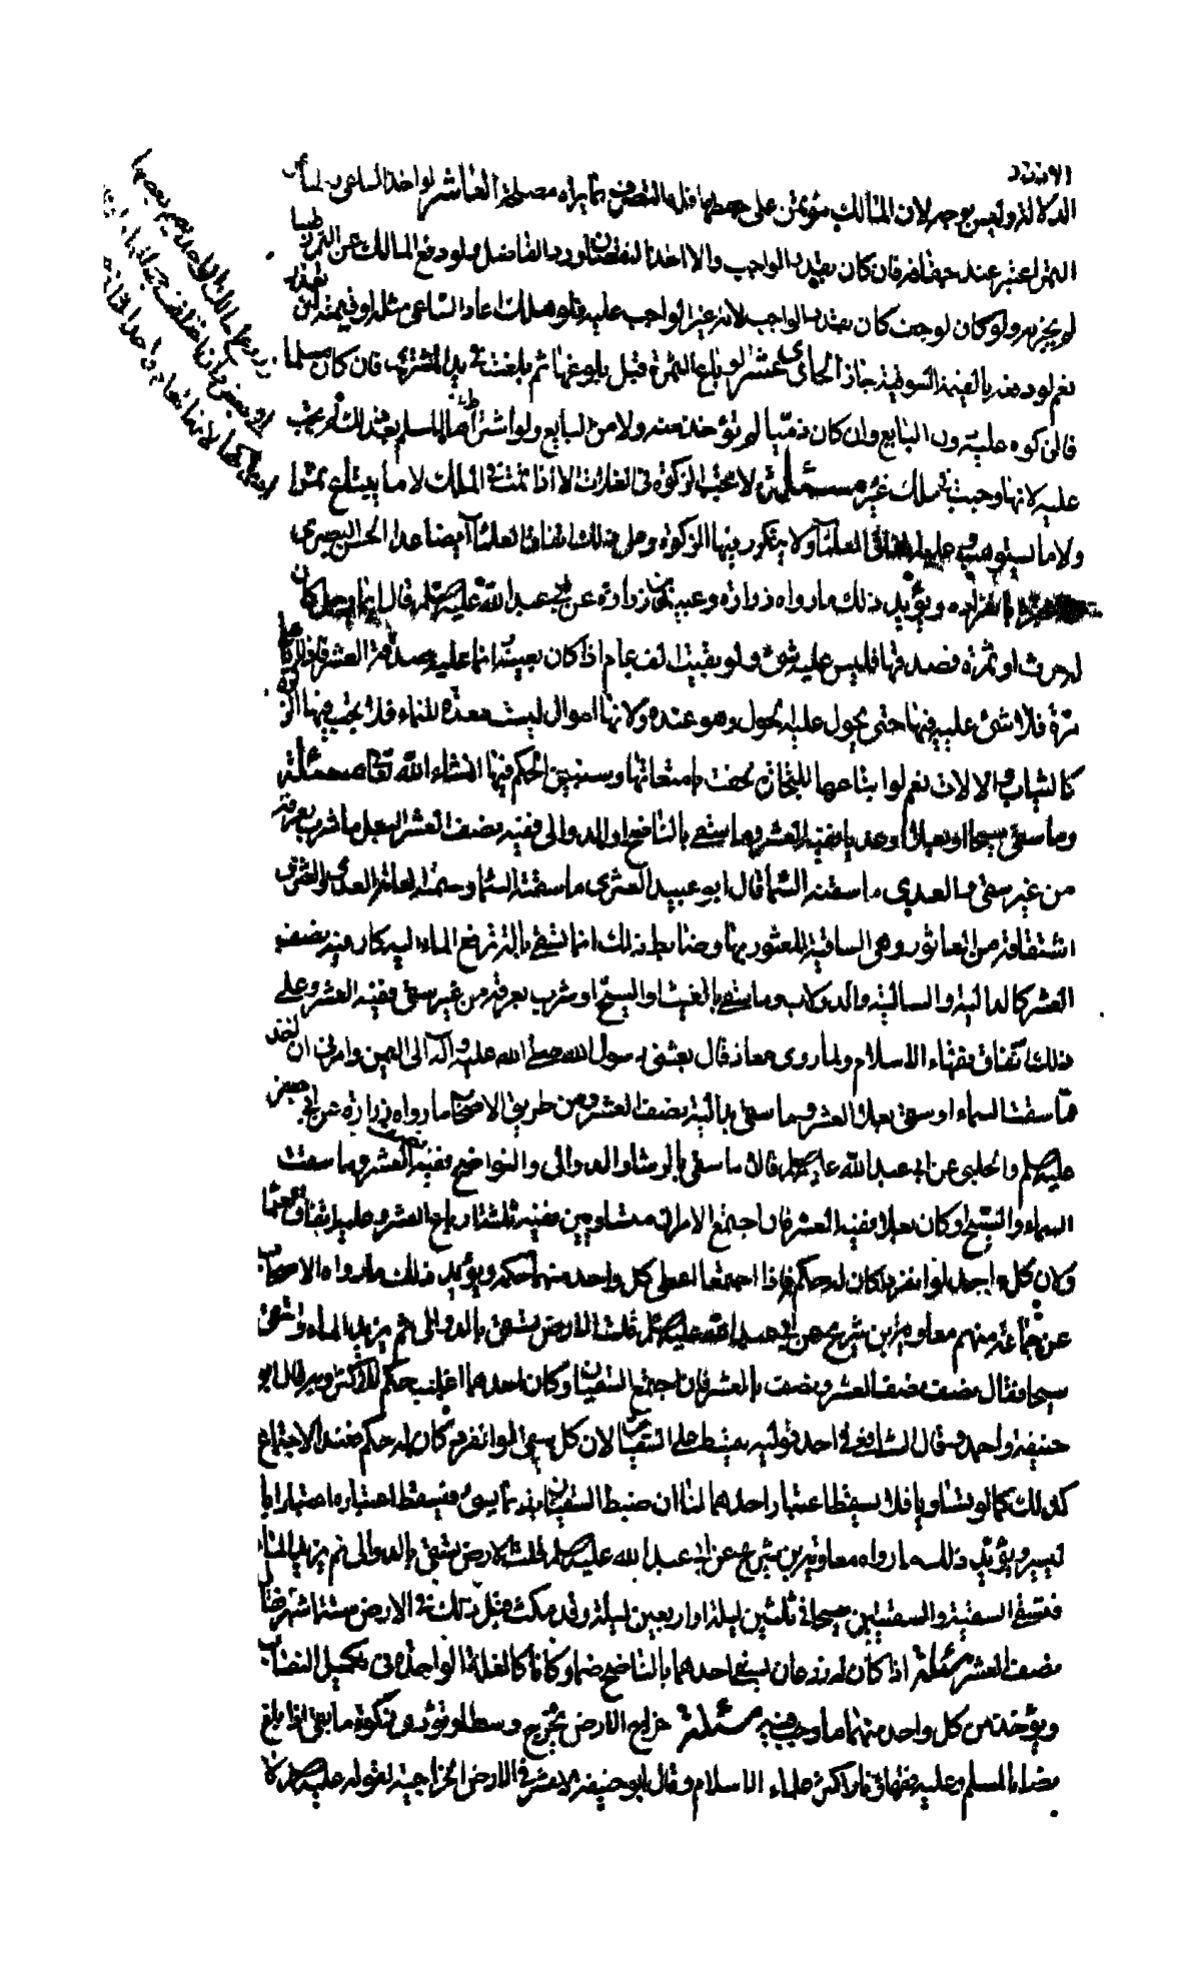 الدلالة وليس بوجه لان المالك مؤتمن على حفظها فله التصرف بما يراه مصلحة العاشر لو اخذ الساعي
الثمن اعتبر عند جفافه فان كان بقدر الواجب والا اخذ النقصان اورد الفاضل ولو دفع المالك عن الثمرة
لم يجزه ولو كان لو جف كان بقدر الواجب لانه غير الواجب عليه فلو هلك اعاد الساعي مثله او قيمته لكن
نعم لو دفعه بالقيمة السوقية جاز الحادي عشر لو باع الثمرة قبل بلوغها ثم بلغت في يد المشتري فان كان مسلما
فالزكوة عليه دون البايع وان كان ذميا لم تؤخذ منه ولا من البايع ولو اشتراها المسلم بعد ذلك لم يجب
عليه لانها وجبت في ملك غيره مسئلة لا تجب الزكوة في الغلات الا اذا نمت في الملك لا ما يبتاع ثمرا
ولا ما يستوهب وعليه اتفاق العلماء ولا يتكرر فيها الزكوة وعلى ذلك اتفاق العلماء ايضا عدا الحسن البصري
ويؤيد ذلك ما رواه زرارة وعبيد بن زرارة عن ابي عبد الله عليه السلم قال ايما رجل كان
له حرث او ثمرة فصدقها فليس عليه شئ ولو بقيت الف عام اذا كان بعينه انما عليه صدقة العشر فاذا اداها
مرة فلا شئ عليه فيها حتى يحول عليه الحول وهو عنده ولانها اموال ليست معدة للنماء فلا يجب فيها الزكوة
كالثياب والالات نعم لو ابتاعها للتجارة لحقت بامتعتها وسنبين الحكم فيها انشاء الله تعالى مسئلة
وما سقي سيحا او بعلا او عذيا ففيه العشر وما سقي بالناضح والدوالي ففيه نصف العشر البعل ما شرب بعرقه
من غير سقي والعذي ما سقته السماء قال ابو عبيد العثري ما سقته السماء وتسميه العامة العذي والعثري
اشتقاقه من العاثور وهي الساقية للعثور بها وضابط ذلك انما سقي بالة ترفع الماء اليه كان فيه نصف
العشر كالدالية والسانية والدولاب وما سقي بالغيث او السيح او شرب بعرقه من غير سقي ففيه العشر وعلى
ذلك اتفاق فقهاء الاسلام ولما روى معاذ قال بعثني رسول الله صلى الله عليه واله الى اليمن وامرني ان اخذ
مما سقت السماء او سقي بعلا العشر ومما سقي بدالية نصف العشر ومن طريق الاصحاب ما رواه زرارة عن ابي جعفر
عليه السلم والحلبي عن ابي عبد الله عليه السلم قالا ما سقي بالرشا والدوالي والنواضح ففيه نصف العشر وما سقت
السماء والسيح او كان بعلا ففيه العشر فان اجتمع الامران متساويين ففيه ثلثة ارباع العشر وعليه اتفاق العلماء
ولان كل واحد لو انفرد كان له حكم فاذا اجتمعا اعطي كل واحد منهما حكمه ويؤيد ذلك ما رواه الاصحاب
عن جماعة منهم معاوية بن شريح عن ابي عبد الله عليه السلم قلت الارض يسقى بالدوالي ثم يزيد الماء وتسقى
سيحا فقال نصف ونصف نصف العشر ونصف بالعشر فان اجتمع السقيان وكان احدهما اغلب حكم للاكثر وبه قال ابو
حنيفة واحمد وقال الشافعي في احد قوليه يقسط على السقيان لان كل سقي لو انفرد كان له حكم فعند الاجتماع
كذلك كما لو تساويا فلا يسقط اعتبار احدهما لنا ان ضبط السقيان بدقة مما يشق فيسقط اعتباره اعتبارا بال
تيسير ويؤيد ذلك ما رواه معاوية بن شريح عن ابي عبد الله عليه السلم قلت الارض يسقى بالدوالي ثم يزيد الماء
فتسقى السقية والسقيتين سيحا في ثلثين ليلة او اربعين ليلة وقد مكث قبل ذلك في الارض ستة اشهر قال
نصف العشر مسئلة اذا كان له زرعان يسقى احدهما بالناضح ضما وكانا كالغلة الواحدة في تكميل النصاب
ويؤخذ من كل واحد منهما ما وجب فيه مسئلة خراج الارض يخرج وسطا ويؤدى زكوة ما بقي اذا بلغ
نصابا لمسلم وعليه فقهاؤنا واكثر علماء الاسلام وقال ابو حنيفة لا عشر في الارض الخراجية لقوله عليه السلم لا